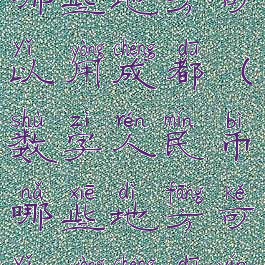 yǐ yòng chéng dū
以用成都（
shù zì rén mín bì
数字人民币
nǎ xiē dì fāng kě
哪些地方可